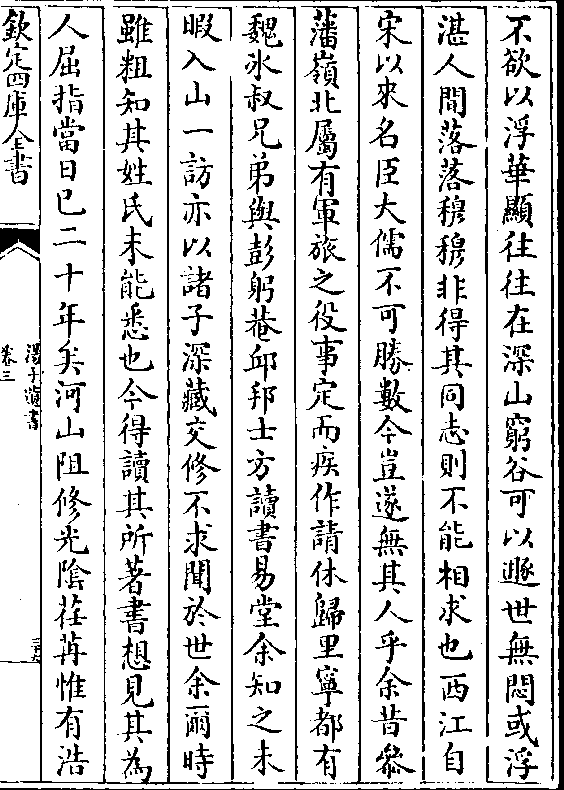 不欲以浮華顯往往在深山窮谷可以遯世無悶或浮
湛人間落落穆穆非得其同志則不能相求也西江自
宋以來名臣大儒不可勝數今豈遂無其人乎余昔叅
藩嶺北屬有軍旅之役事定而疾作請休歸里寧都有
魏氷叔兄弟與彭躬菴邱邦士方讀書易堂余知之未
暇入山一訪亦以諸子深藏交修不求聞於世余爾時
雖粗知其姓氏未能悉也今得讀其所著書想見其為
人屈指當日已二十年矣河山阻修光陰荏苒惟有浩
欽定四庫全書
湯子遺書
卷三